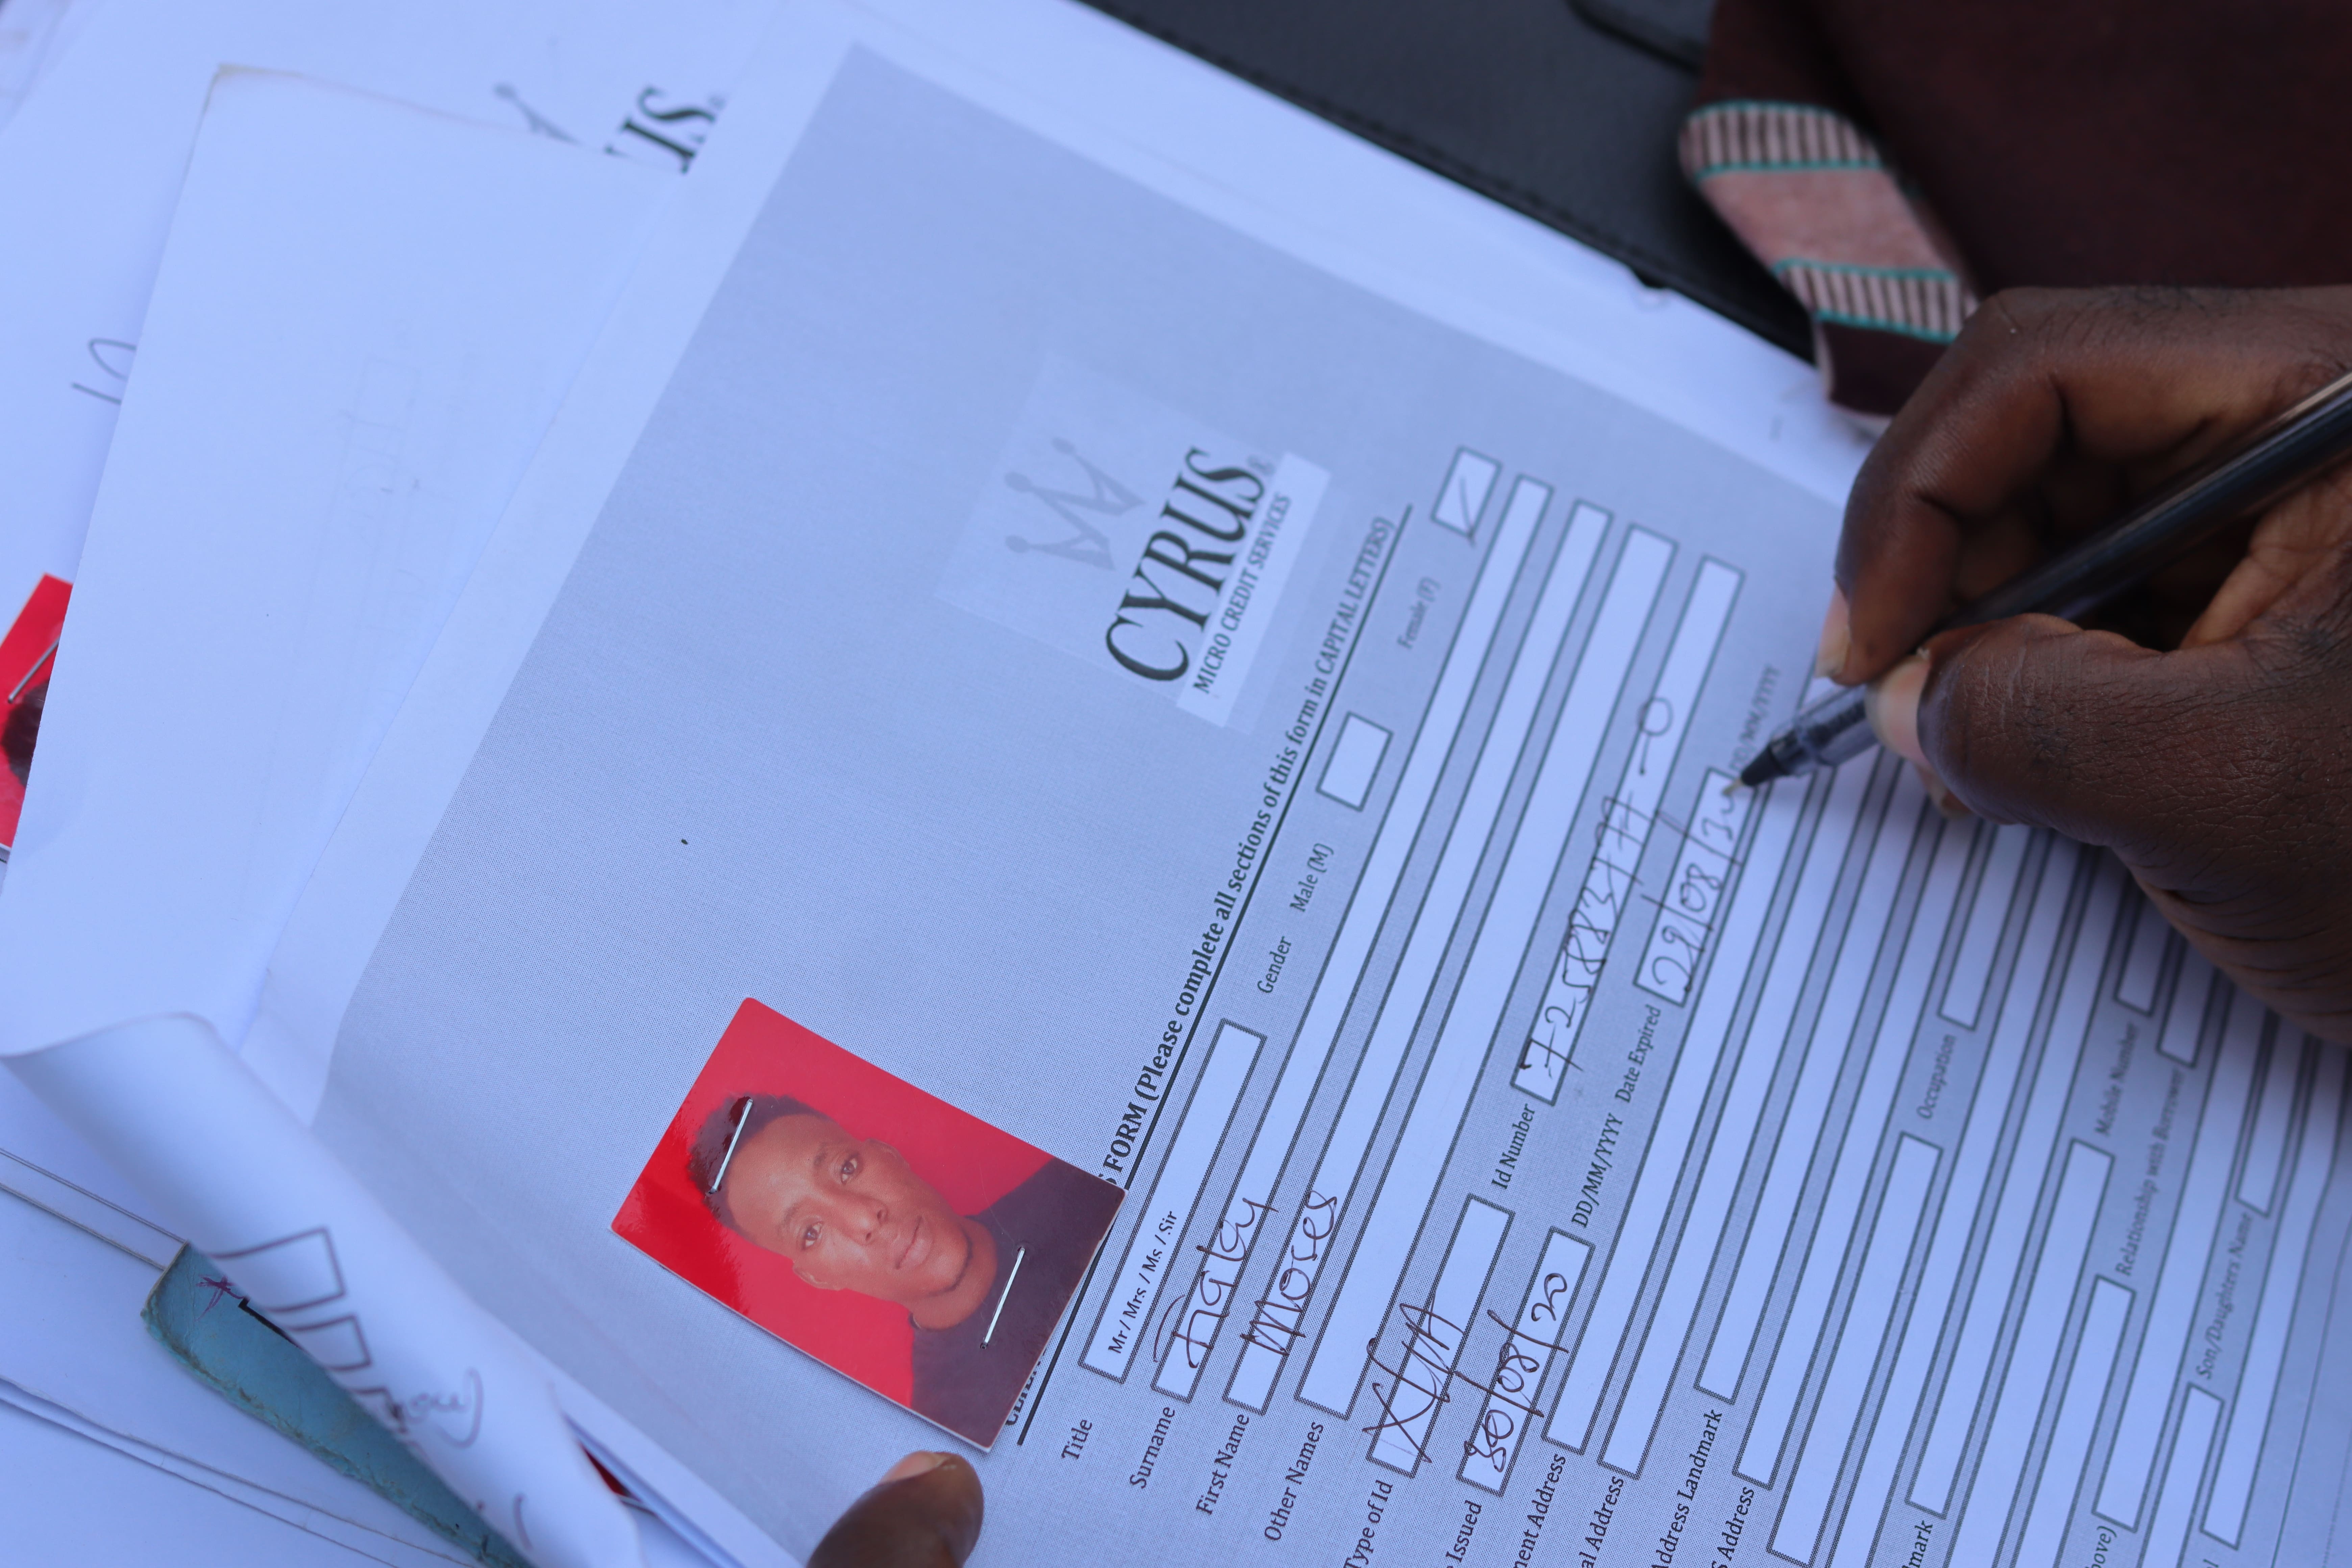 US
CYRUS®
MICRO CREDIT SERVICES
S FORM (Please complete all sections of this form in CAPITAL LETTERS)
Title Mr / Mrs / Ms / Sir Gender Male (M) Female (F)
Surname
First Name Moses
Other Names
Type of Id Id Number
Issued DD/MM/YYYY Date Expired 29/08/3 DD/MM/YYYY
ment Address
al Address
Address Landmark
s Address
Occupation
mark
Mobile Number
Relationship with Borrower
bove)
Son/Daughters Name